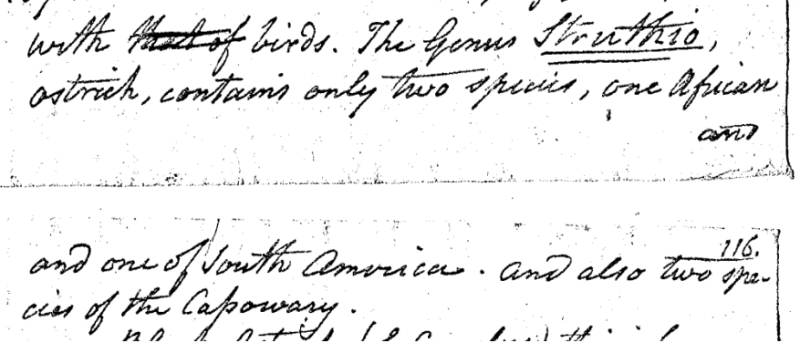 with that of birds. The Genus Struthio,
ostrich, contains only two species, one African
and
116.
and one of South America. and also two spe-
cies of the Casowary.